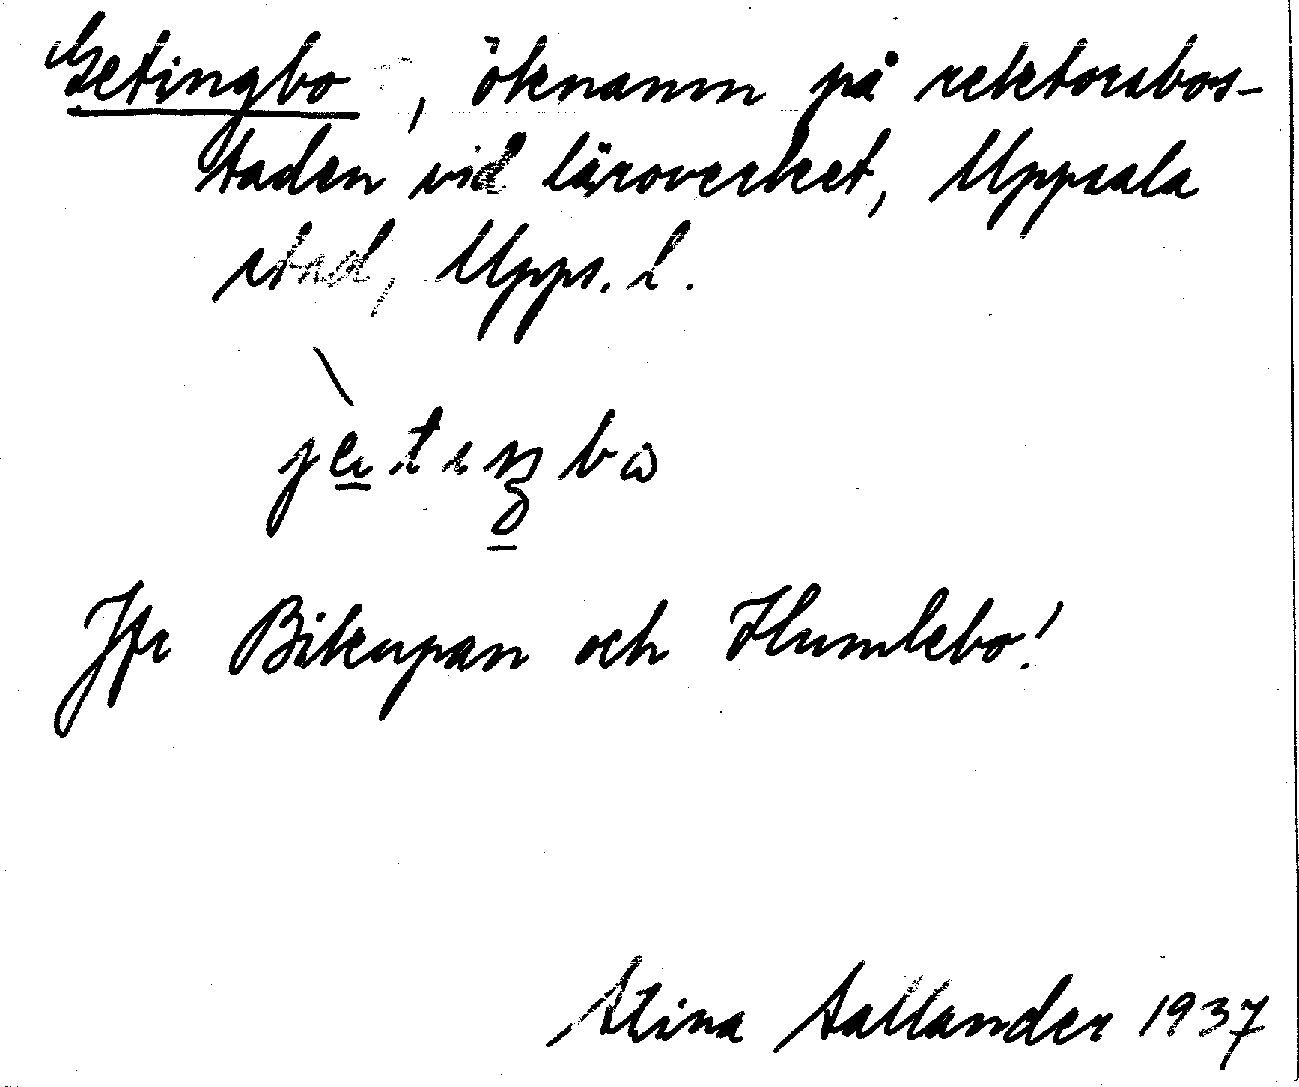 Getingbo, öknamn på rektorsbos-
taden vid läroverket, Uppsala
stad, Upps. l.
Jfr Bikupan och Humlebo!
Stina Sallander 1937